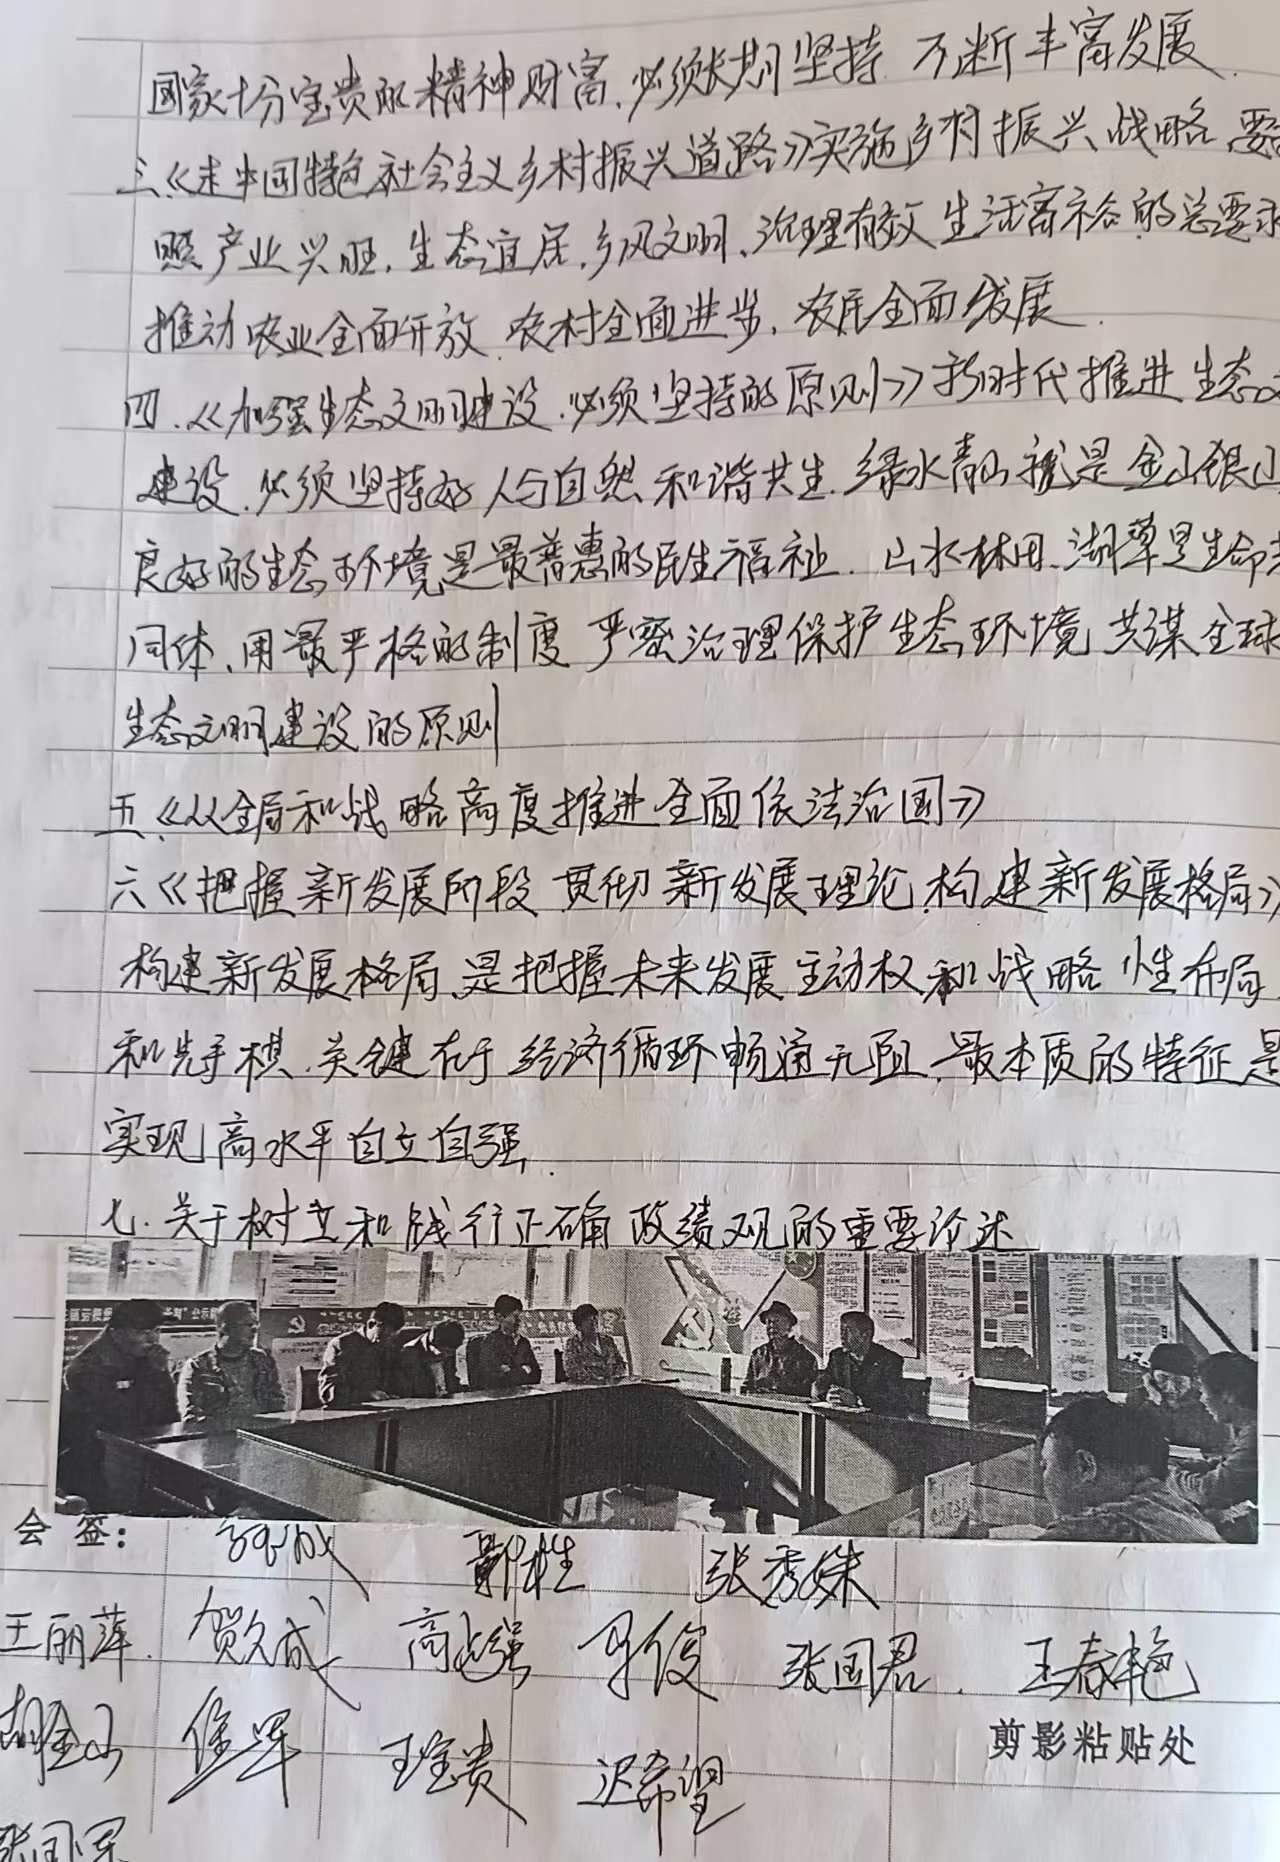 国家十分宝贵的精神财富、必须长期坚持、不断丰富发展.
三、《走中国特色社会主义乡村振兴道路》实施乡村振兴战略、要
照产业兴旺、生态宜居、乡风文明、治理有效、生活富裕的总要求
推动农业全面开放、农村全面进步、农民全面发展.
四、《加强生态文明建设、必须坚持的原则》新时代推进生态文
建设、必须坚持好人与自然和谐共生、绿水青山就是金山银山
良好的生态环境是最普惠的民生福祉、山水林田、湖草是生命共
同体、用最严格的制度 严密治理保护生态环境 共谋全球
生态文明建设的原则
五、《从全局和战略高度推进全面依法治国》
六《把握新发展阶段 贯彻新发展理论、构建新发展格局》
构建新发展格局、是把握未来发展主动权和战略性布局
和先手棋、关键在于经济循环畅通无阻、最本质的特征是
实现高水平自立自强.
七、关于树立和践行正确政绩观的重要论述
会签:
张秀妹
王丽萍 贺久成 高志强 张国君 王春艳
胡金山 王宝贵 迟希望
剪影粘贴处
张国军